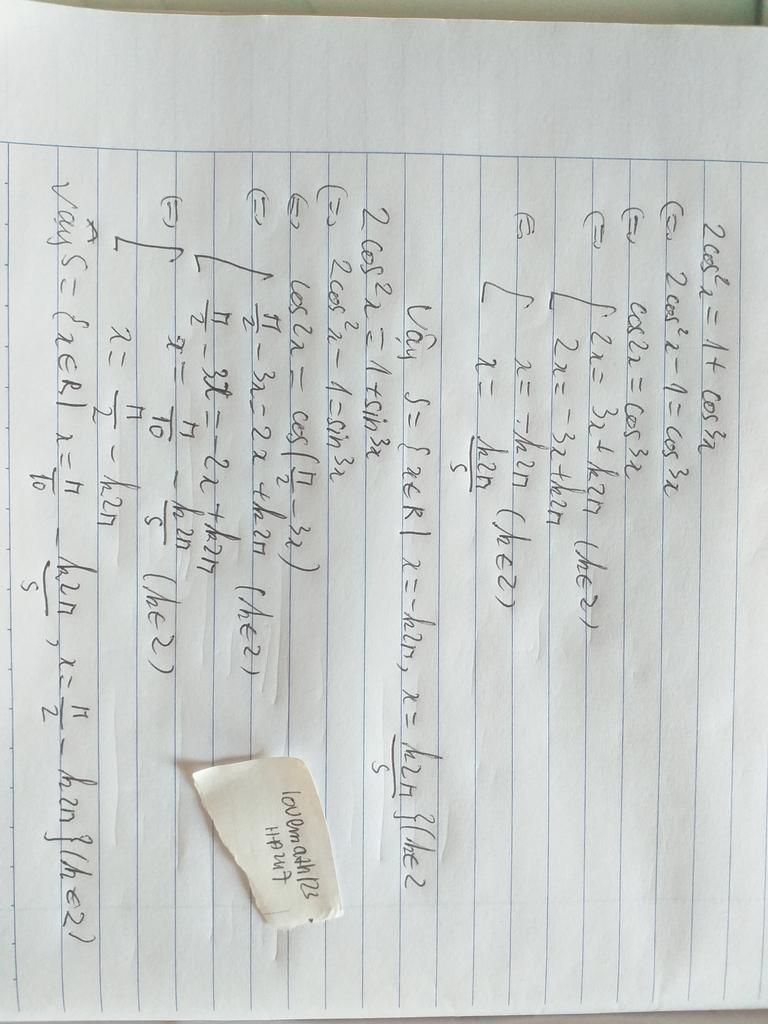 2cos²x = 1 + cos3x
(=) 2cos²x - 1 = cos3x
(=) cos2x = cos3x
(=) [ 2x = 3x + k2π (k∈Z)
[ 2x = -3x + k2π
(=) [ x = -k2π (k∈Z)
[ x = k2π/5
Vậy S = {x∈R | x = -k2π, x = k2π/5 } (k∈Z
2cos²x = 1 + sin3x
(=) 2cos²x - 1 = sin3x
(=) cos2x = cos(π/2 - 3x)
(=) [ π/2 - 3x = 2x + k2π (k∈Z)
[ π/2 - 3x = -2x + k2π
(=) [ x = π/10 - k2π/5 (k∈Z)
[ x = π/2 - k2π
Vậy S = {x∈R | x = π/10 - k2π/5, x = π/2 - k2π} (k∈Z)
lovemath123
H+A247